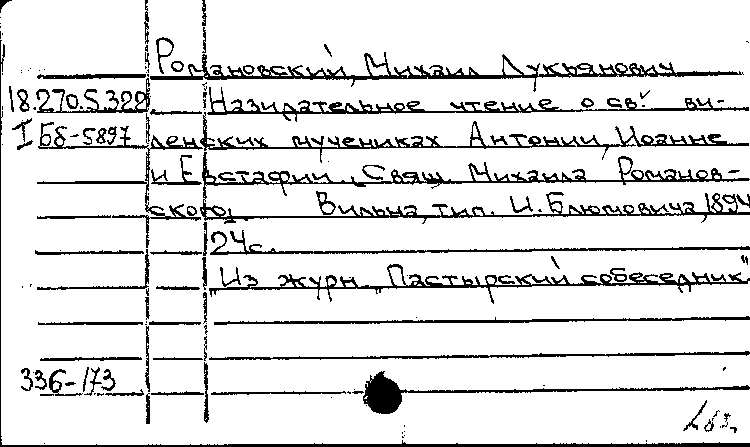 Романовский, Михаил Лукьянович
18.270.5.322. Назидательное чтение о св. ви-
I Бб-5897 ленских мучениках Антонии, Иоанне
и Евстафии. Свящ. Михаила Романов-
ского. Вильна, тип. И. Блюмовича, 1894
24с.
"Из журн. "Пастырский собеседник"
336-173